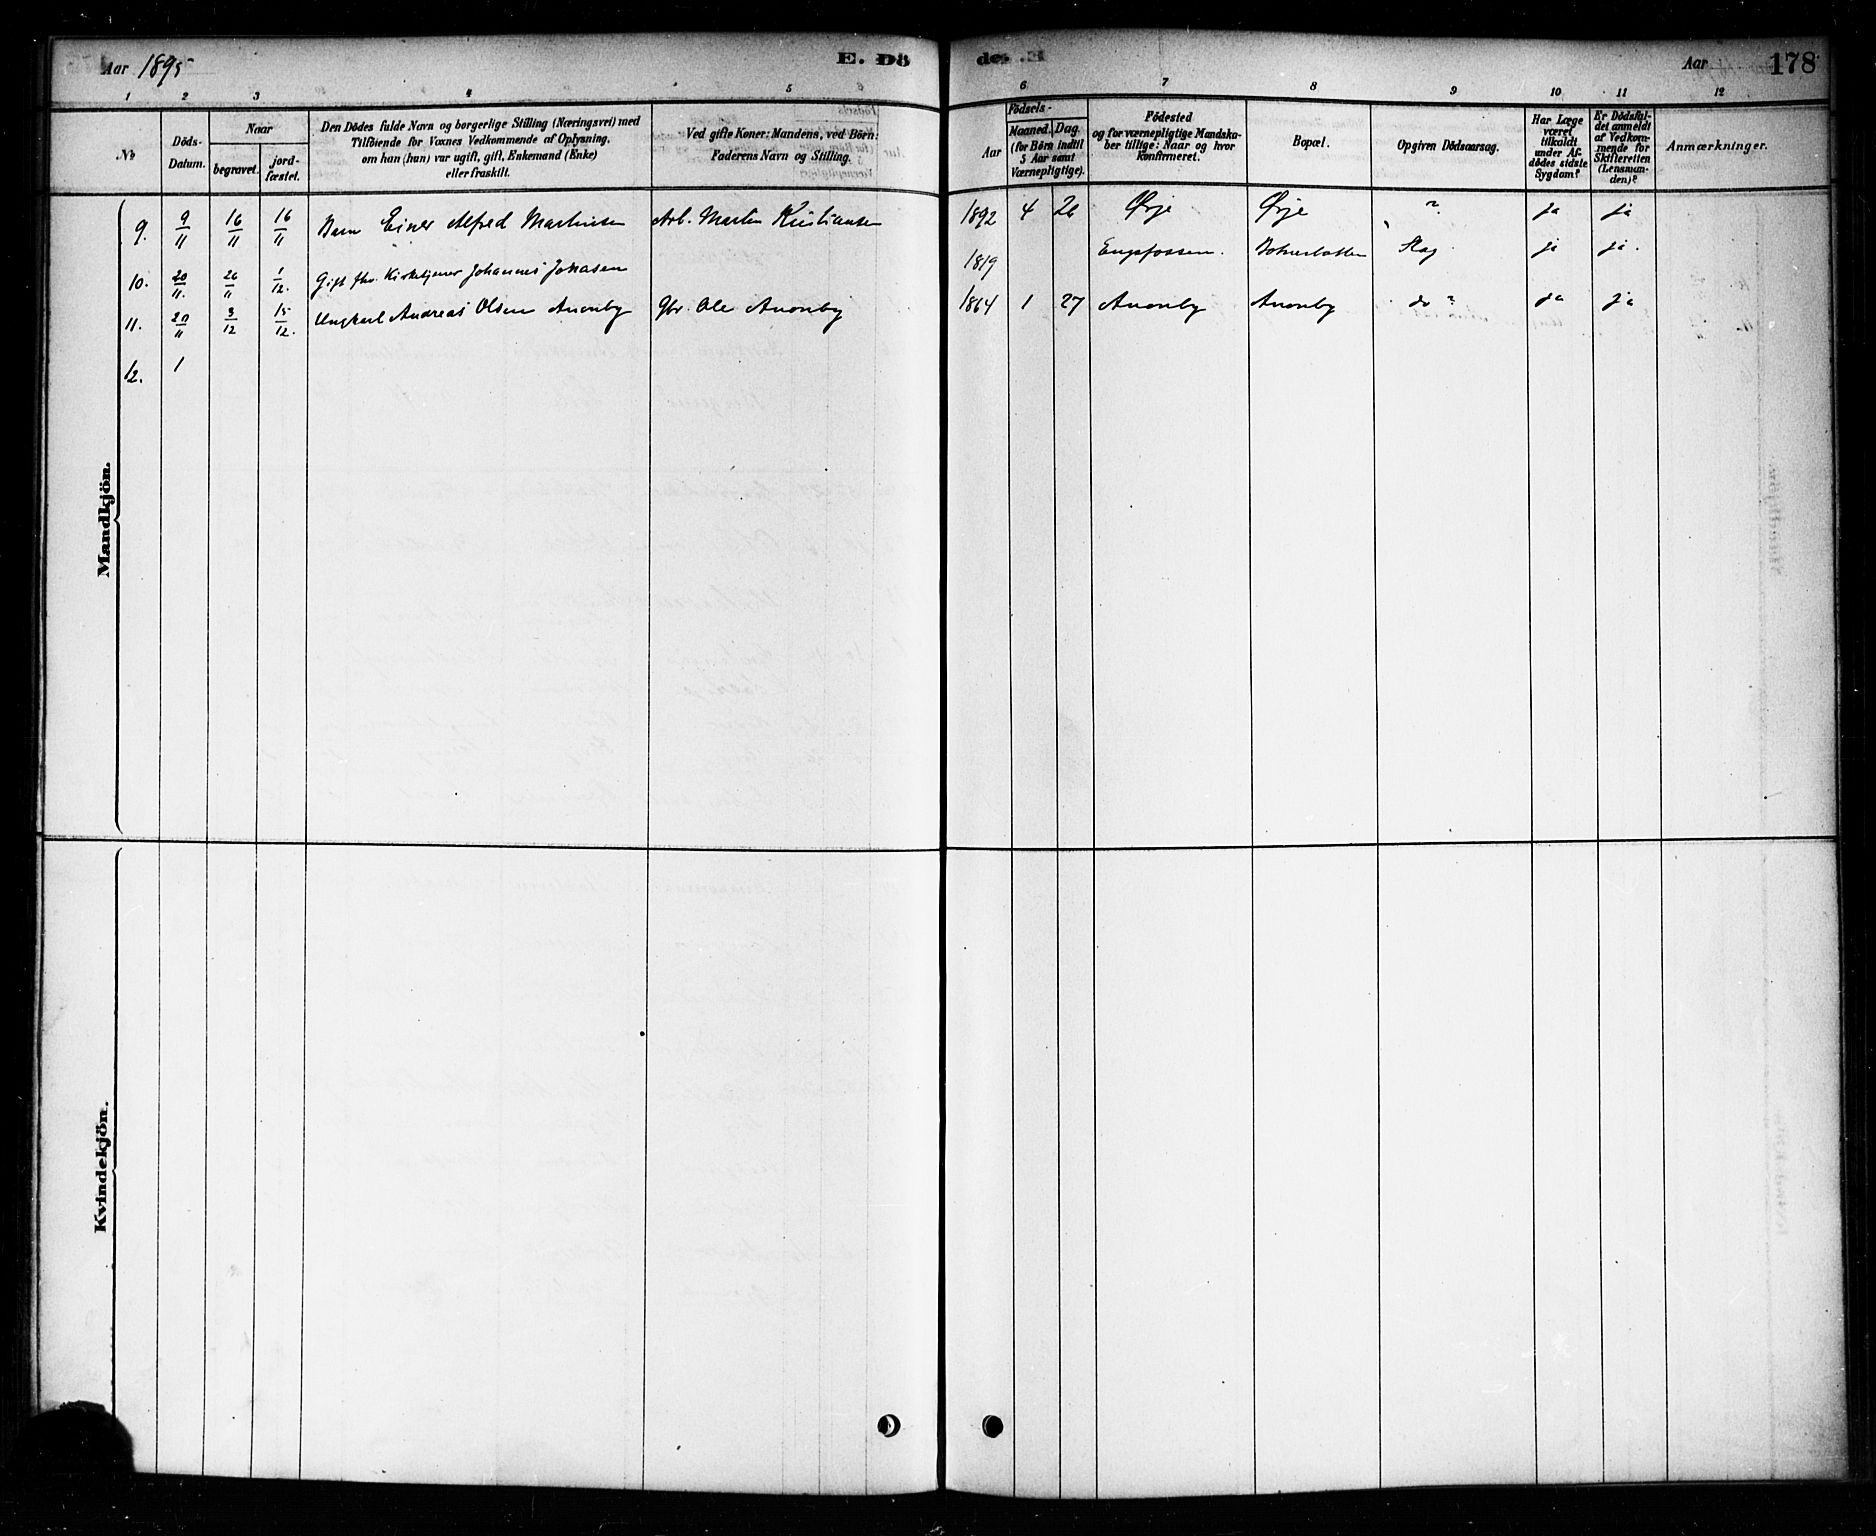 Aar 1895 E. Dö des. E. Aar 178
1 2 3 4 5 6 7 8 9 10 11 12
No
Döds-Datum.
Naar
begravet.
jord-fæstet.
Den Dödes fulde Navn og borgerlige Stilling (Næringsvei) med
Tilföiende for Voxnes Vedkommende af Oplysning,
om han (hun) var ugift, gift, Enkemand (Enke)
eller fraskilt.
Ved gifte Koner: Mandens, ved Börn:
Faderens Navn og Stilling.
Födsels-
Aar
Maaned. Dag.
(for Börn indtil
5 Aar samt
Værnepligtige).
Födested
og for værnepligtige Mandska-
ber tillige: Naar og hvor
konfirmeret.
Bopæl.
Opgiven Dödsaarsag.
Har Læge
været
tilkaldt
under Af-
dödes sidste
Sygdom?
Er Dödsfal-
det anmeldt
af Vedkom-
mende for
Skifteretten
(Lensman-
den)?
Anmærkninger.
Mandkjön.
9. 9/11 16/11 16/11 Barn Einar Alfred Martinsen Arb. Martin Kristiansen 1892 4 26 Ørje Ørje ? ja ja
10. 20/11. 26/11 1/12. Gift fhv. Kirketjener Johannes Jonasen 1819 Engsfossen. Slag ja ja.
11. 9/12 15/12. Ungkarl Andreas Olsen Anonby Gbr. Ole Anonby 1864 1 27 Anonby Anonby do ? ja ja
12. 1
Kvindekjön.